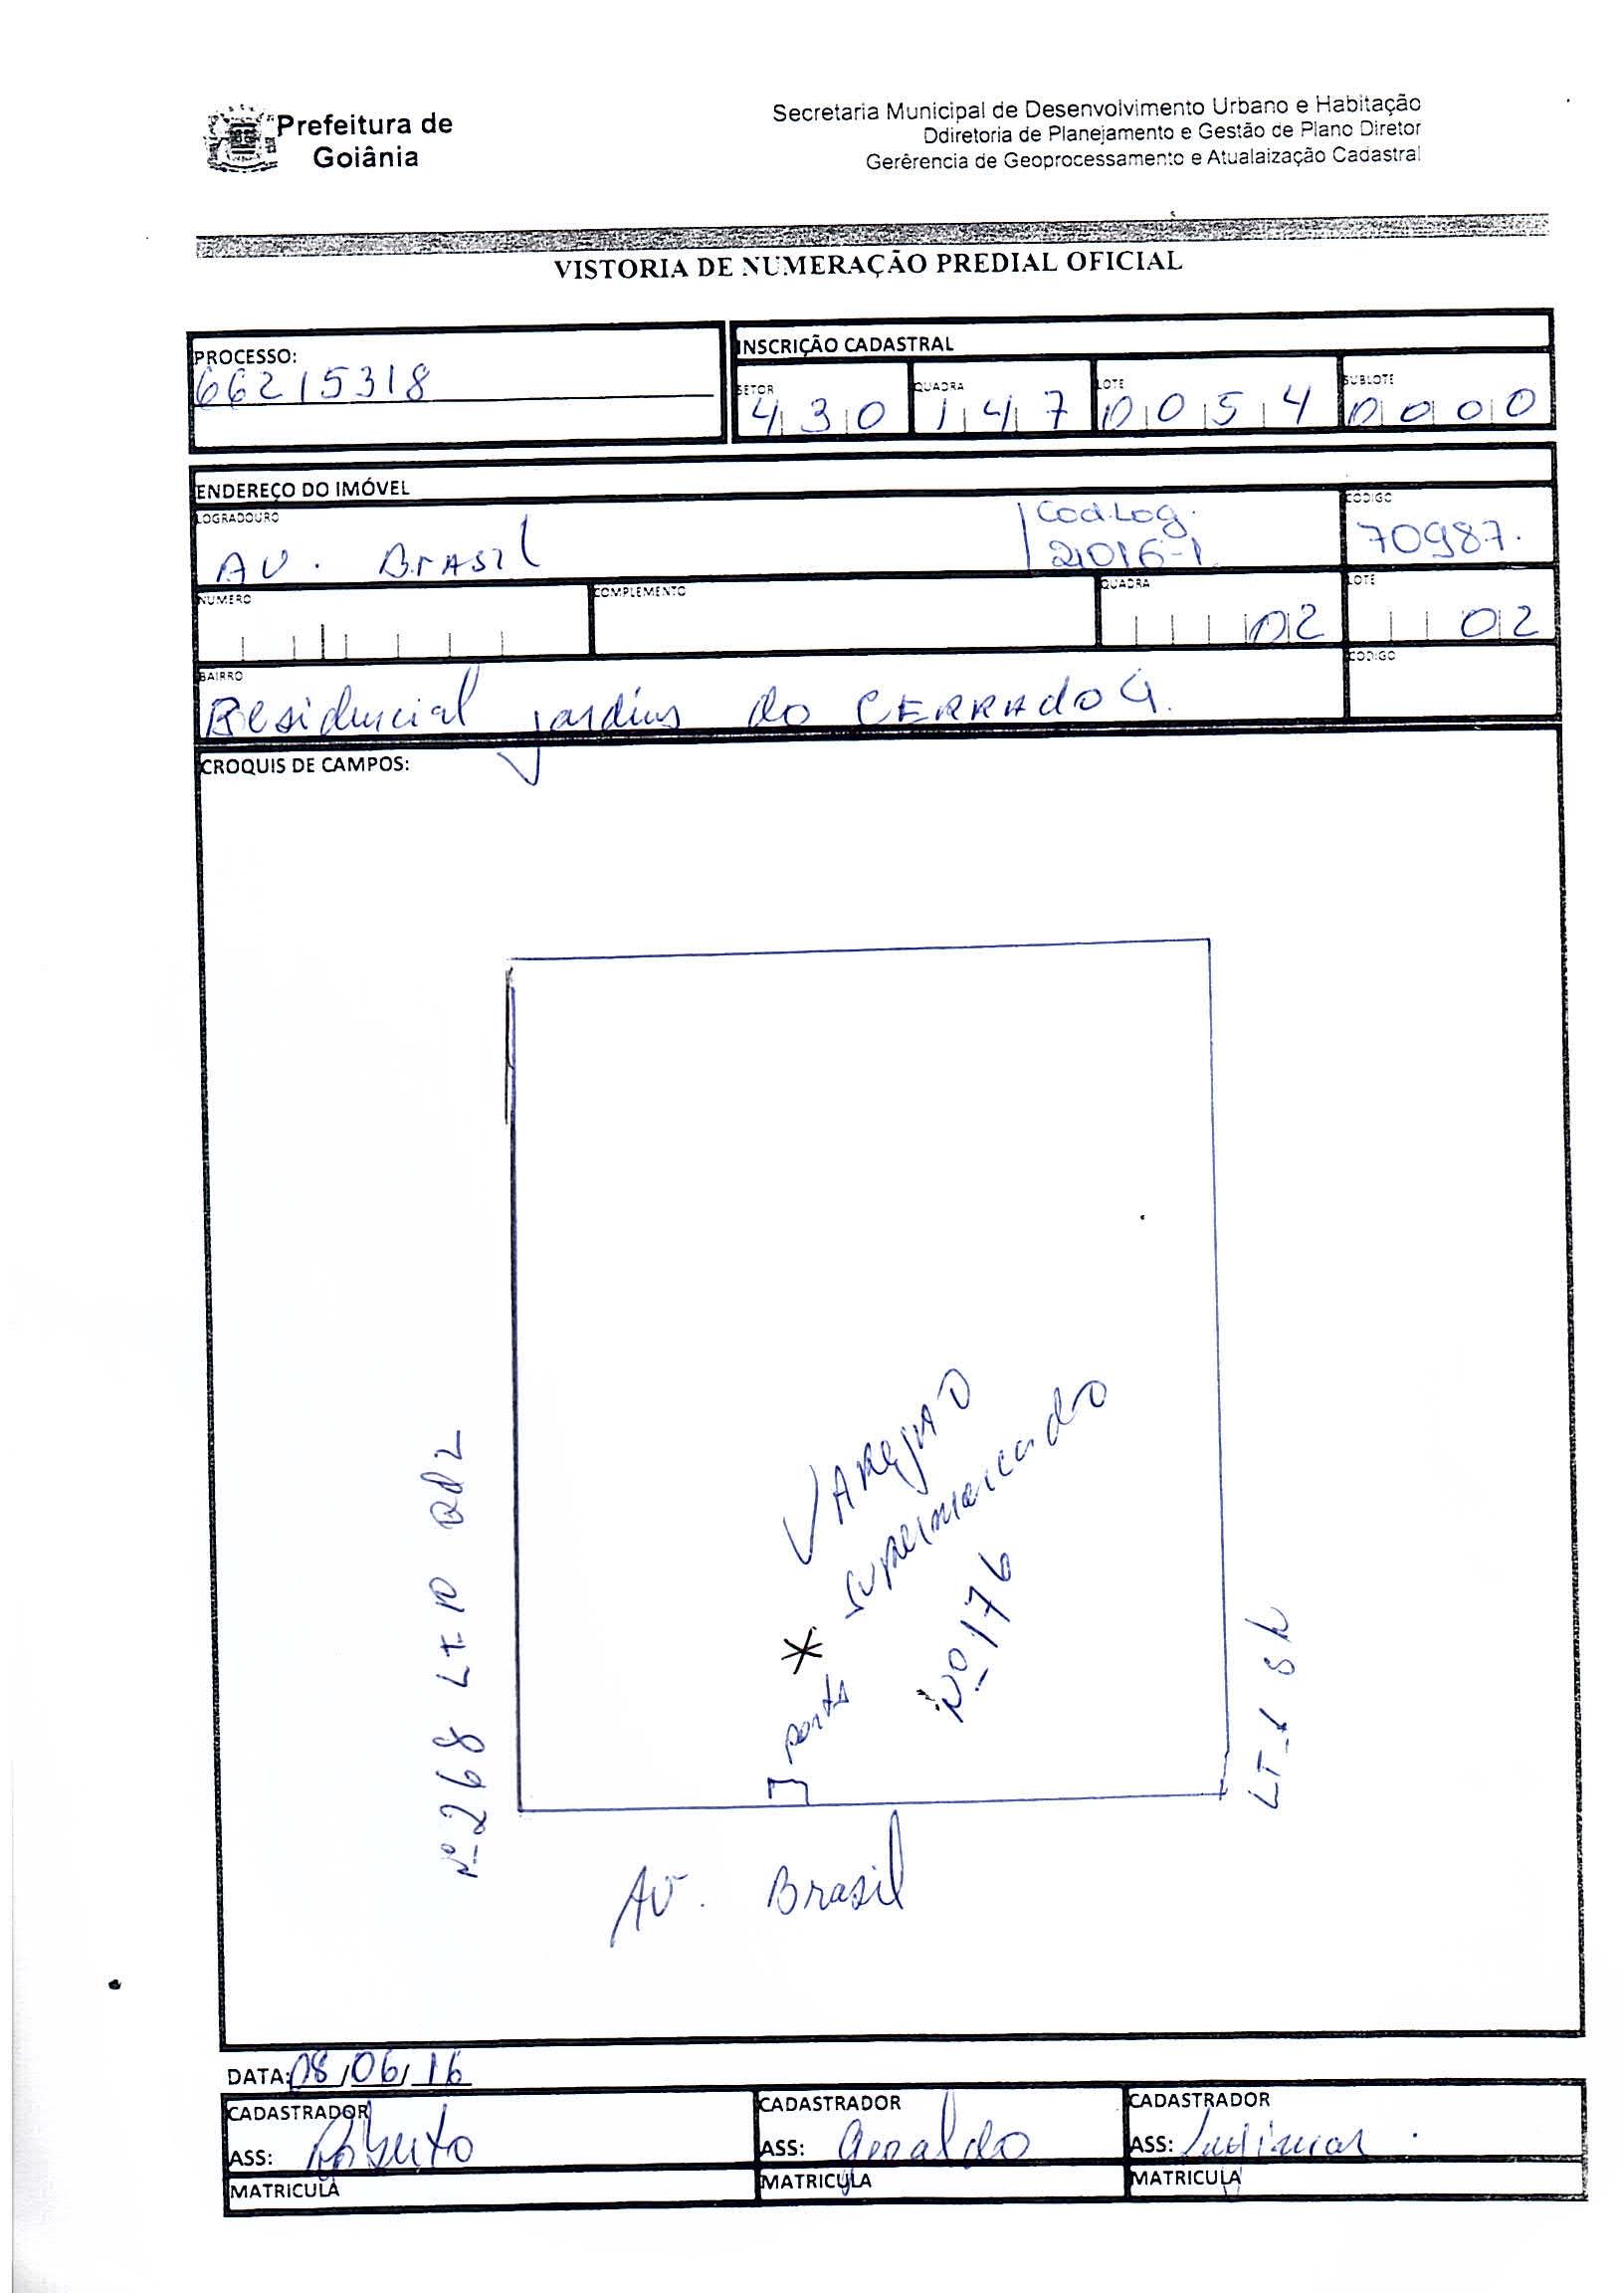 Prefeitura de
Goiânia
Secretaria Municipal de Desenvolvimento Urbano e Habitação
Ddiretoria de Planejamento e Gestão de Plano Diretor
Gerêrencia de Geoprocessamento e Atualaização Cadastral
VISTORIA DE NUMERAÇÃO PREDIAL OFICIAL
PROCESSO:
66215318
INSCRIÇÃO CADASTRAL
SETOR QUADRA LOTE SUBLOTE
430 147 0054 0000
ENDEREÇO DO IMÓVEL
LOGRADOURO CODIGO
AV. BrASIl Cod.Log. 70987.
2016-1
NUMERO COMPLEMENTO QUADRA LOTE
02 02
BAIRRO CODIGO
Residencial jardins do CERRAdo 4.
CROQUIS DE CAMPOS:
VAREJAO
supermercado
Nº 176
porta
Nº 268 LT 10 Qd 2
LT-1
AV. Brasil
DATA: 08/06/16
CADASTRADOR CADASTRADOR CADASTRADOR
ASS: Roberto ASS: Geraldo ASS:
MATRICULA MATRICULA MATRICULA